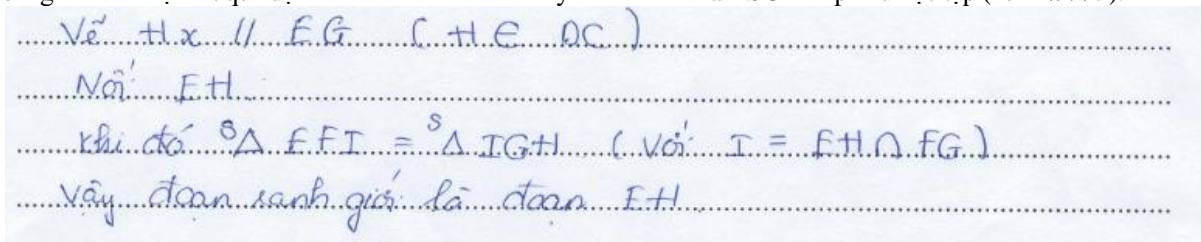 Vẽ Hx // EG ( H ∈ DC )
Nối EH
Khi đó S Δ EFI = S Δ IGH ( Với I = EH ∩ FG )
Vậy đoạn ranh giới là đoạn EH